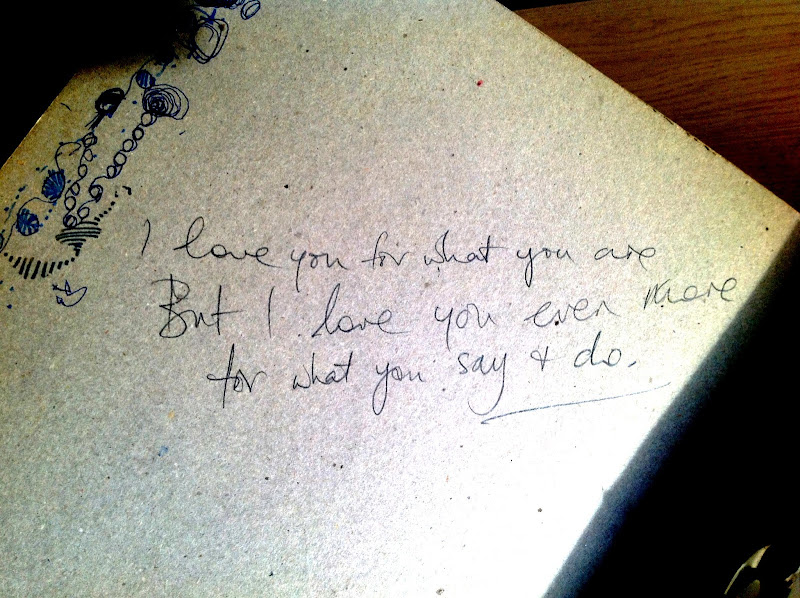 I love you for what you are
But I love you even more
for what you say & do.